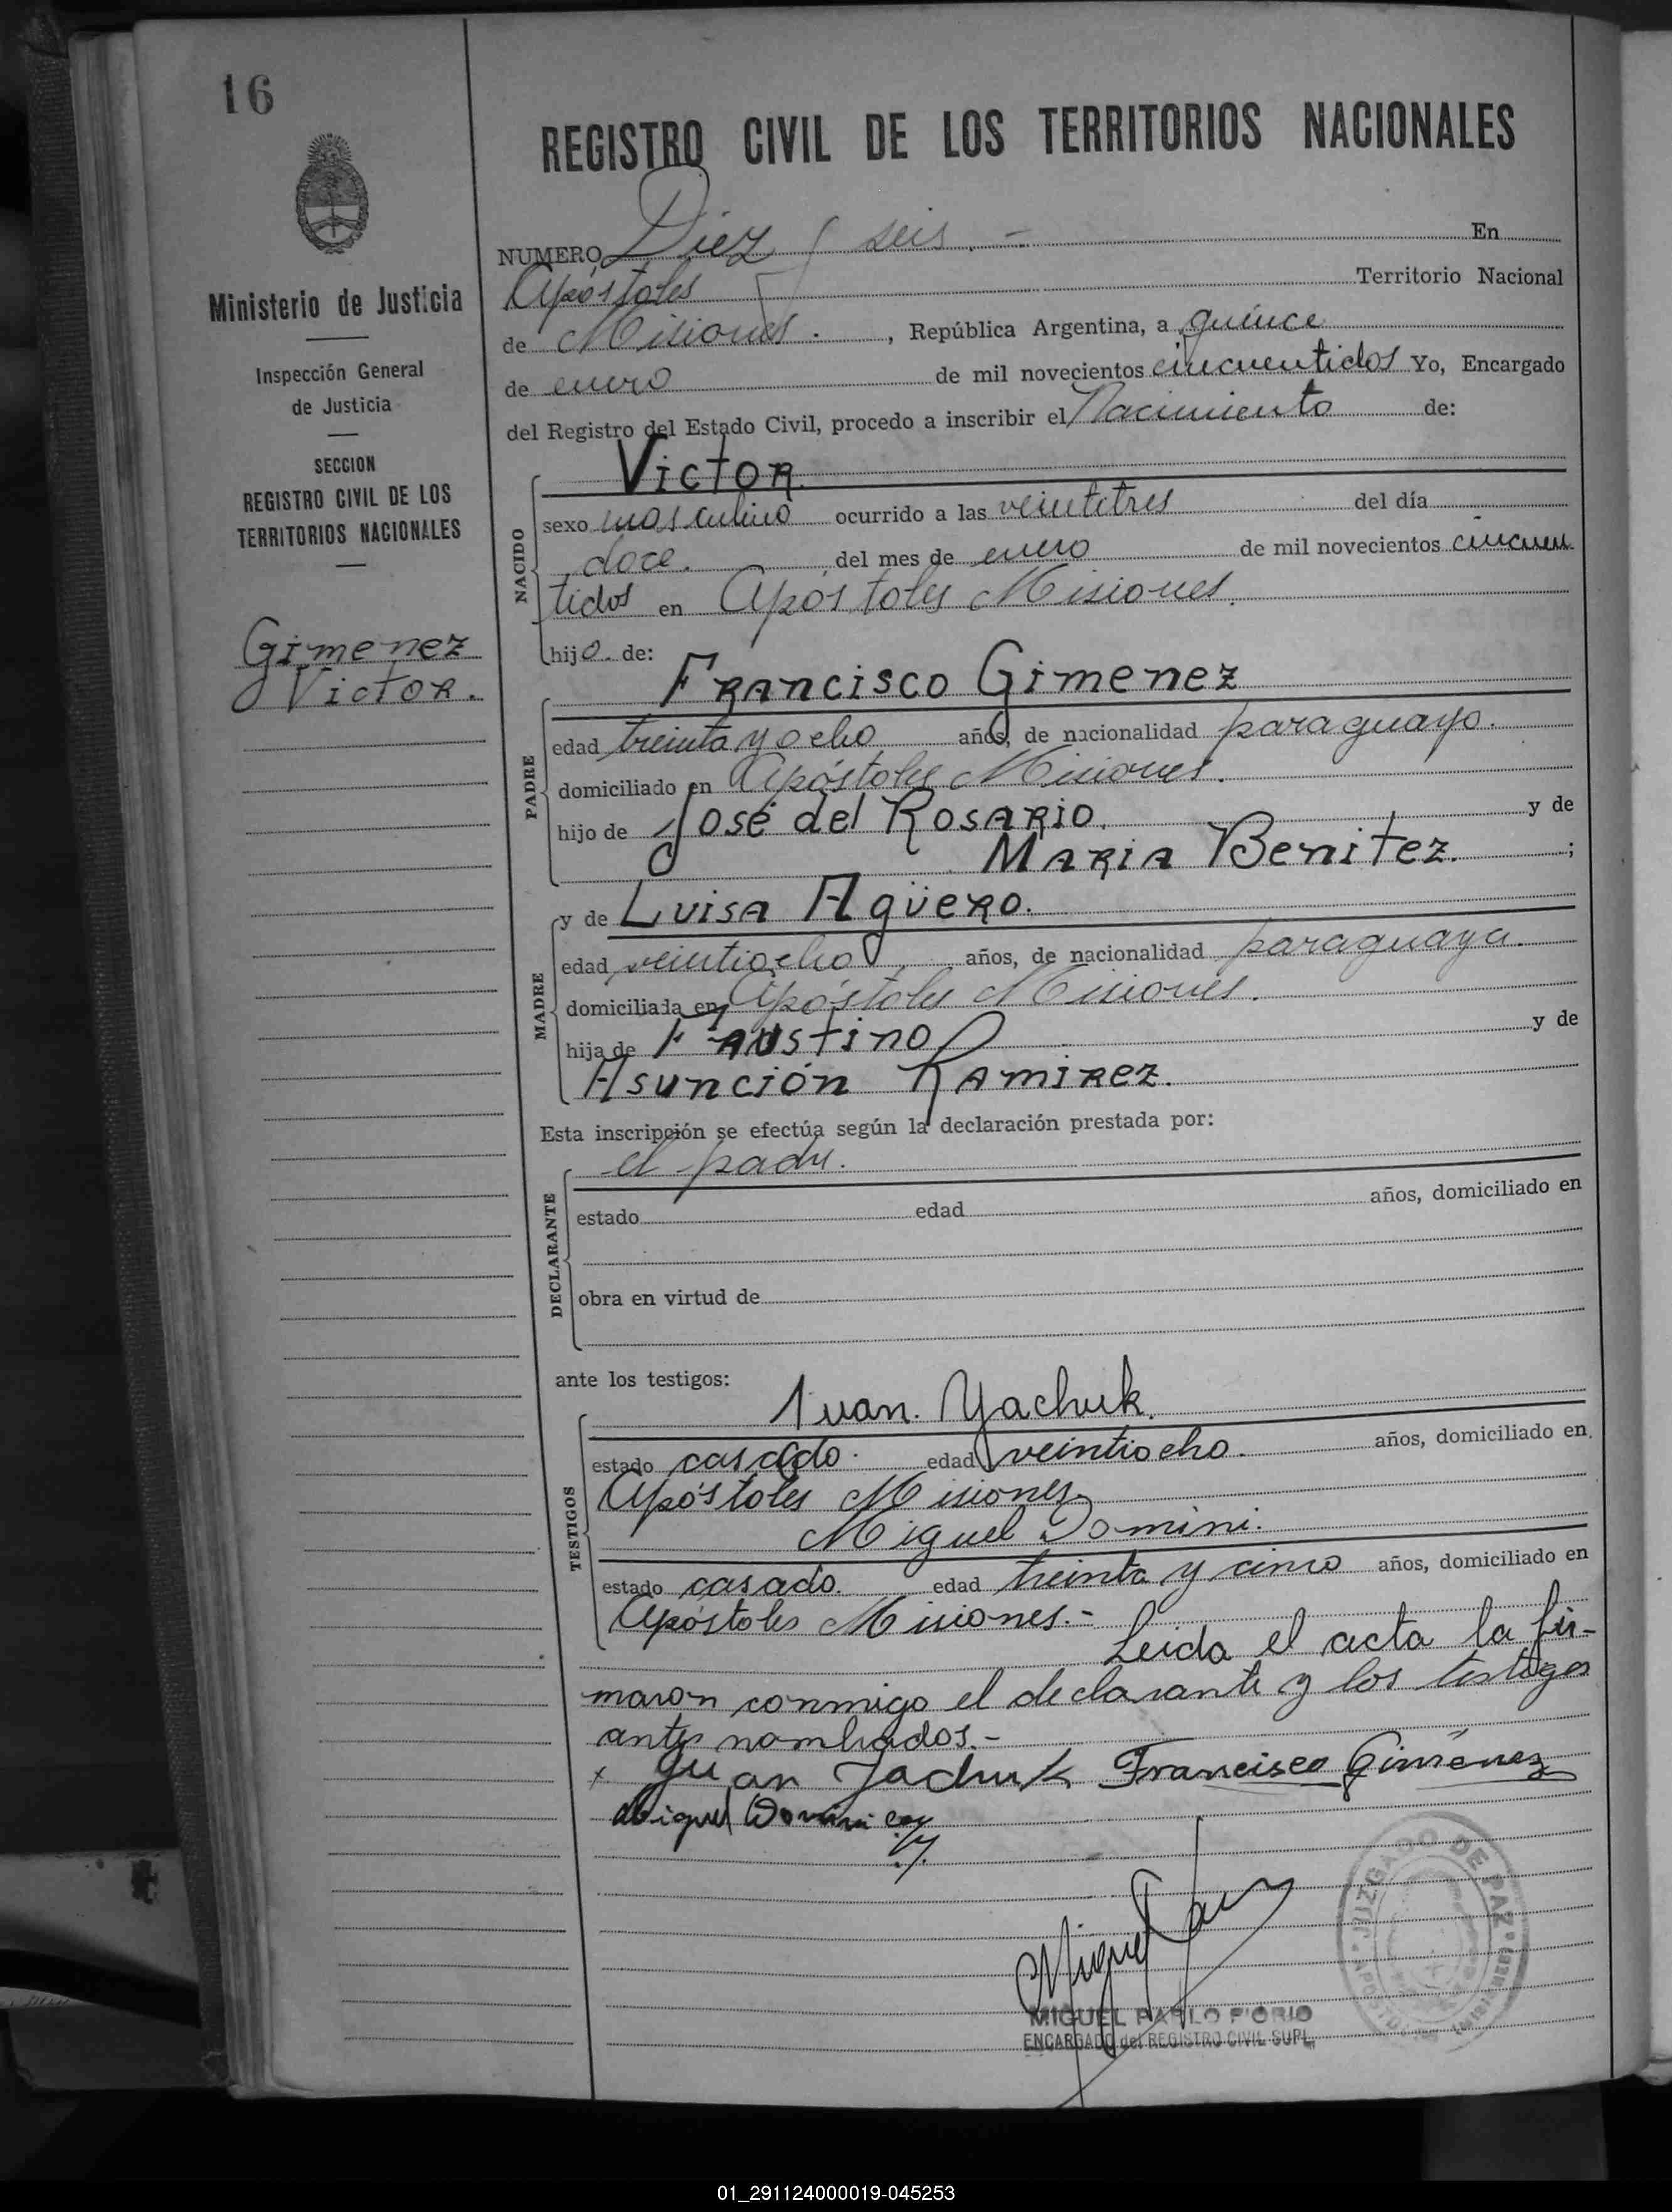 16
REGISTRO CIVIL DE LOS TERRITORIOS NACIONALES
NUMERO Diez y seis.- En
Apóstoles Territorio Nacional
de Misiones. , República Argentina, a quince
de enero de mil novecientos cincuentidos Yo, Encargado
del Registro del Estado Civil, procedo a inscribir el Nacimiento de:
Ministerio de Justicia
Inspección General
de Justicia
SECCION
REGISTRO CIVIL DE LOS
TERRITORIOS NACIONALES
Gimenez
Victor.
NACIDO
Victor.
sexo masculino ocurrido a las veintitres del día
doce. del mes de enero de mil novecientos cincuen
tidos en Apóstoles Misiones.
hijo. de:
PADRE
Francisco Gimenez
edad treinta y ocho años, de nacionalidad paraguayo.
domiciliado en Apóstoles Misiones.
hijo de José del Rosario. y de
Maria Benitez. ;
MADRE
y de Luisa Agüero.
edad veintiocho años, de nacionalidad paraguaya.
domiciliada en Apóstoles Misiones.
hija de Faustino y de
Asunción Ramirez.
Esta inscripción se efectúa según la declaración prestada por:
DECLARANTE
el padre.
estado edad años, domiciliado en
obra en virtud de
ante los testigos:
TESTIGOS
Juan. Yachuk.
estado casado. edad veintiocho. años, domiciliado en
Apóstoles Misiones
Miguel Domini.
estado casado. edad treinta y cinco años, domiciliado en
Apóstoles Misiones.-
Leida el acta la fir-
maron conmigo el declarante y los testigos
antes nombrados.-
x Juan Jachuk Francisco Giménez
Miguel
Miguel
JUZGADO DE PAZ
MIGUEL PABLO FIORIO
ENCARGADO del REGISTRO CIVIL SUPL.
01_291124000019-045253